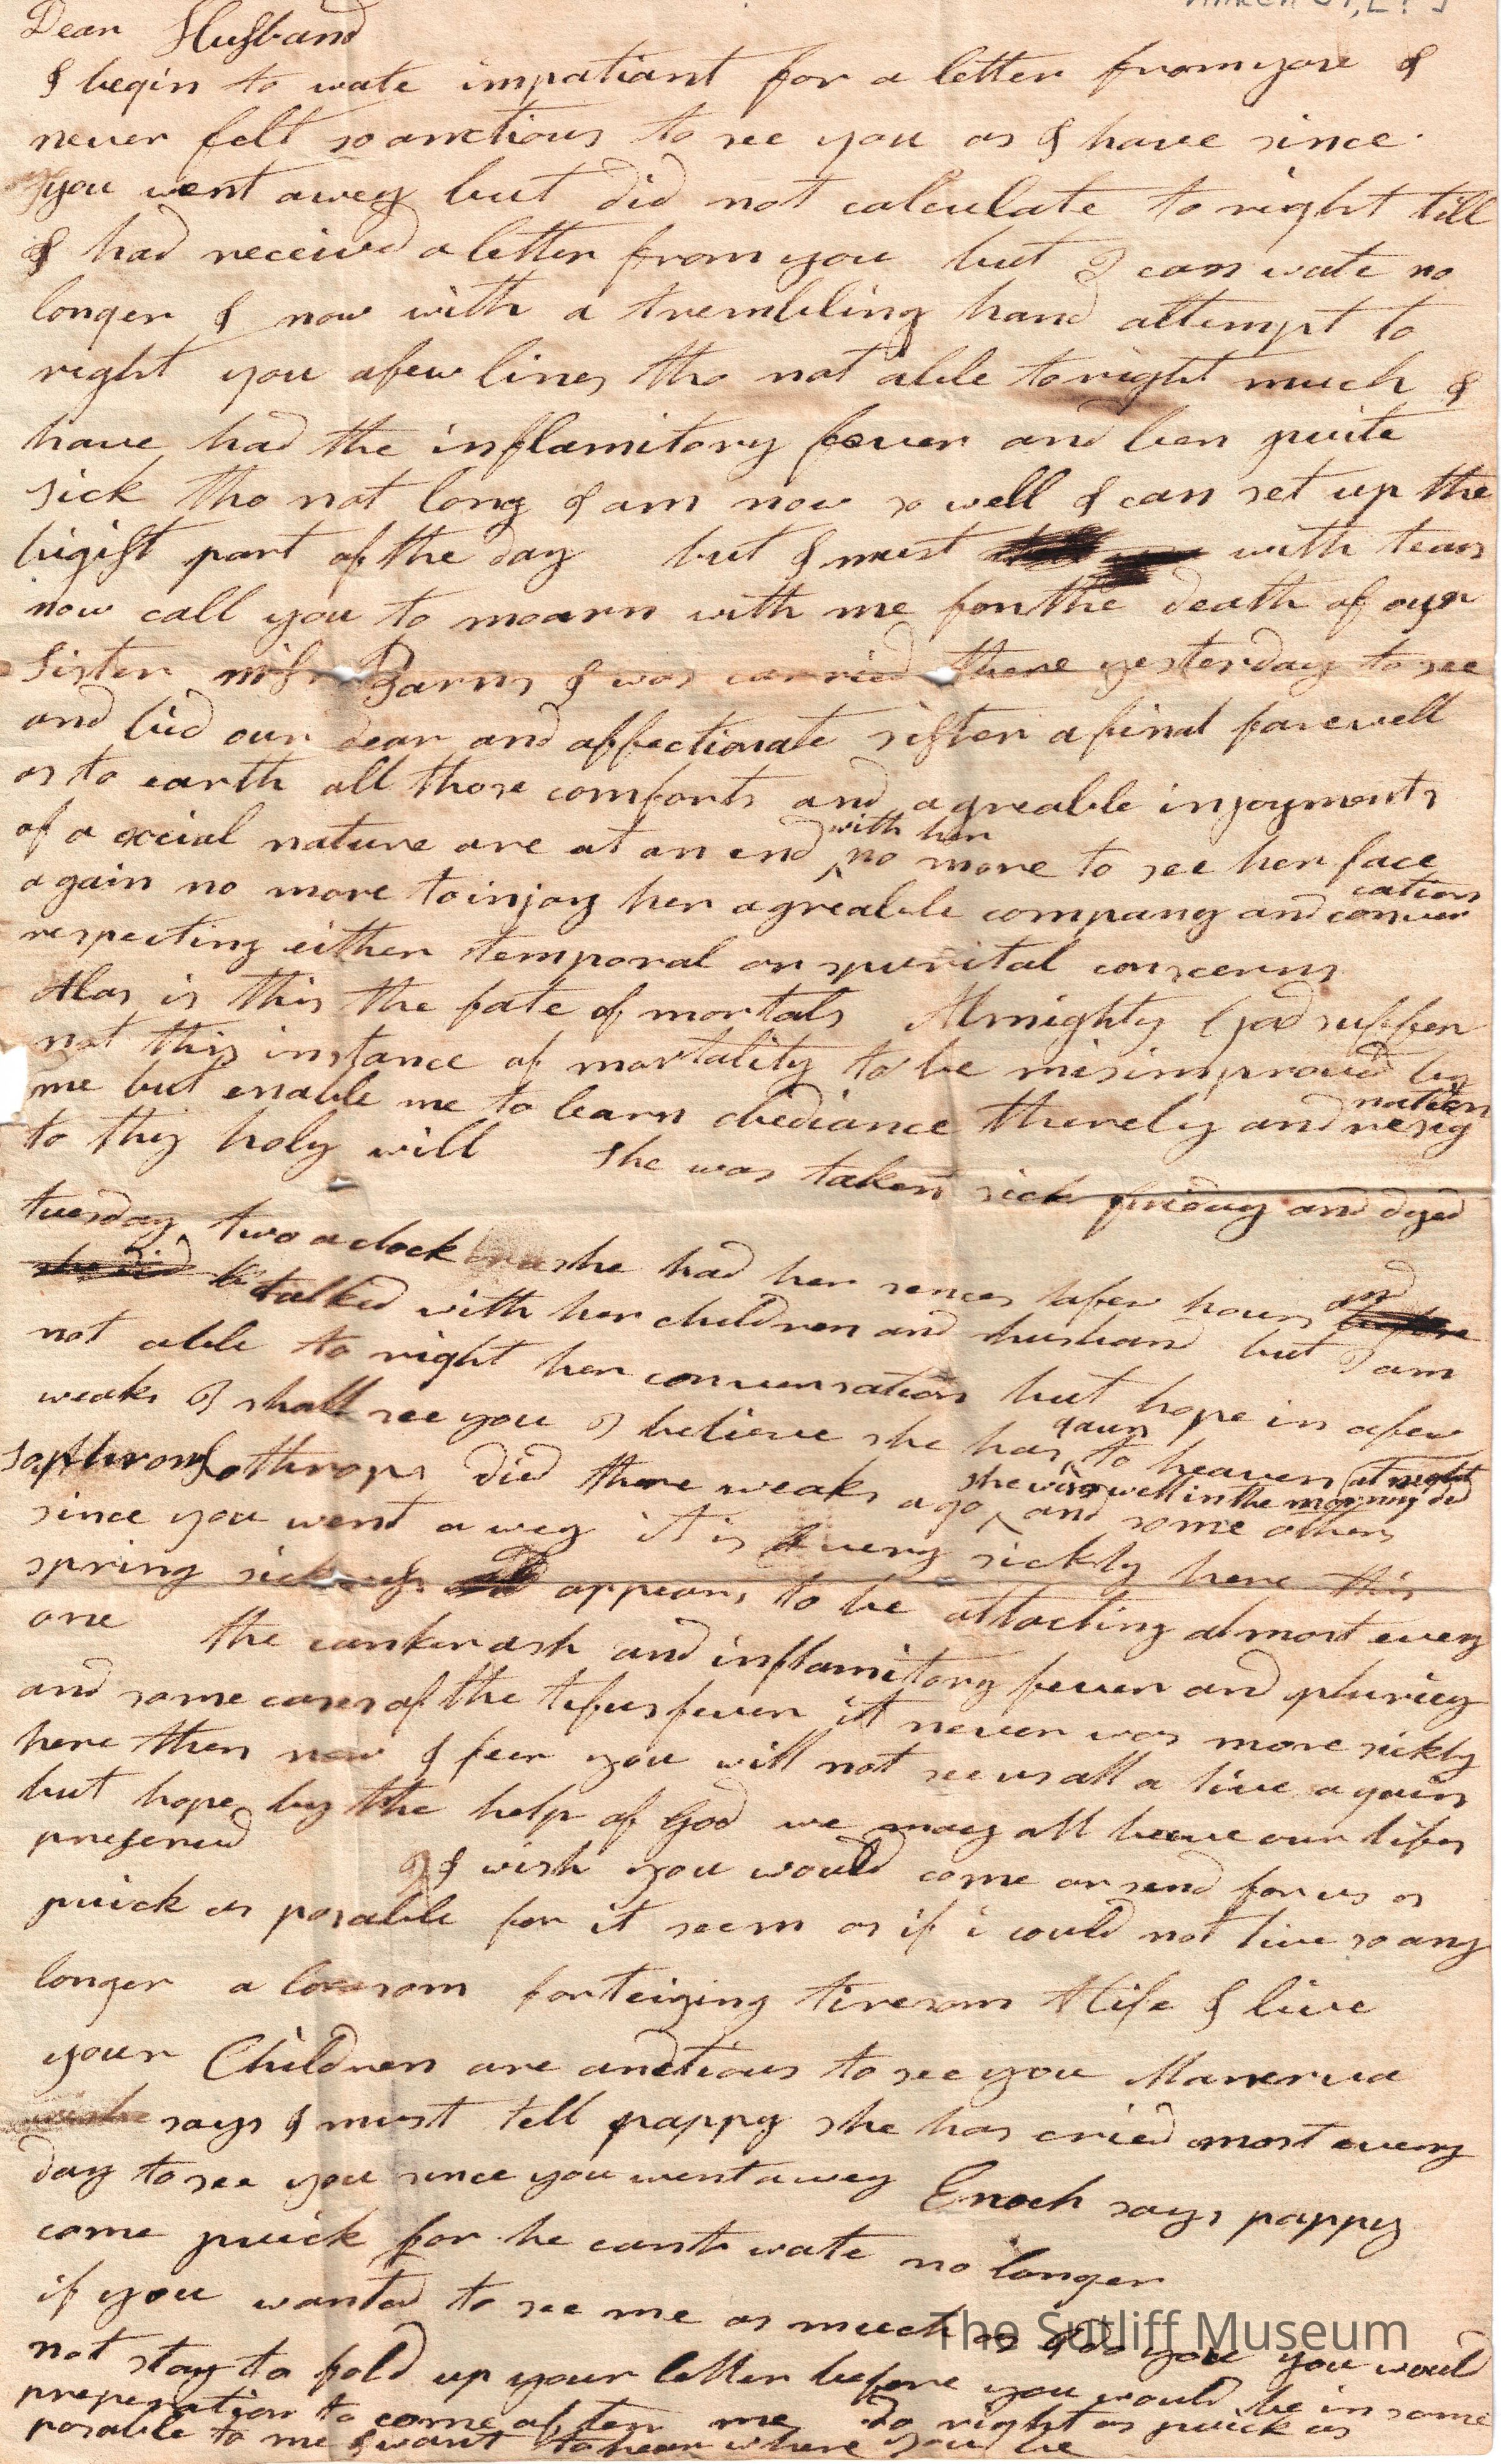 March 31, [?]
Dear Husband
I begin to wate impatiant for a letter from you I
never felt so anctious to see you as I have since
you went awey but did not calculate to right till
I had received a letter from you but I can wate no
longer I now with a trembling hand attempt to
right you a few lines tho not able to right much I
have had the inflamitory fever and ben quite
sick tho not long I am now so well I can set up the
bigist part of the day but I must with tears
now call you to moarn with me for the death of our
Sister Barns I was carried there yesterday to see
and bid our dear and affectionate sister a final farewell
as to earth all those comforts and agreable injoyments
of a social nature are at an end with her no more to see her face
again no more to injoy her agreable company and conver cation
respecting either temporal or spurital conscerns
Alas is this the fate of mortals Almighty God suffer
not this instance of mortality to be misimproved by
me but enable me to learn obediance thereby and resig nation
to thy holy will she was taken sick friday and dyed
tuesday two aclock she had her sences a few hours and
talked with her children and husband but I am
not able to right her conversation but hope in a few
weaks I shall see you I believe she has gaun to heaven
Lothrops died there weaks ago she was well in the morning did at night and some others
since you went awey it is a very sickly here this
spring sickness appears to be attacting almost every
one the cankerash and inflamitory fever and pluricy
and some cases of the tifus fever it never was more sickly
here then now I feer you will not see us all a live again
but hope by the help of God we may all have our lifes
preserved I wish you would come or send for us as
quick as posable for it seem as if i could not live so any
longer a lonesom forteiging tiresom life I live
your Children are anctious to see you Manerva
says I must tell pappy she has cried most every
day to see you since you went awey Enoch says pappy
come quick for he cant wate no longer
if you wanted to see me as much as I do you you would
not stay to fold up your letter before you would be in some
preperation to come after me do right as quick as
posable to me I want to hear where you be
The Sutliff Museum